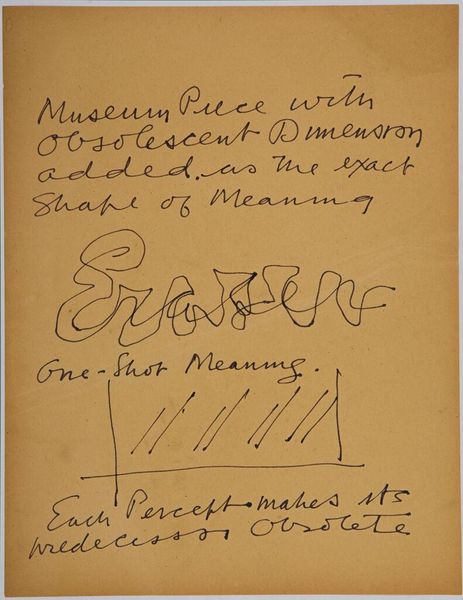 Museum Piece with
Obsolescent Dimension
added. as the exact
Shape of Meaning
One-Shot Meaning.
Each Percept makes its
predecessor Obsolete